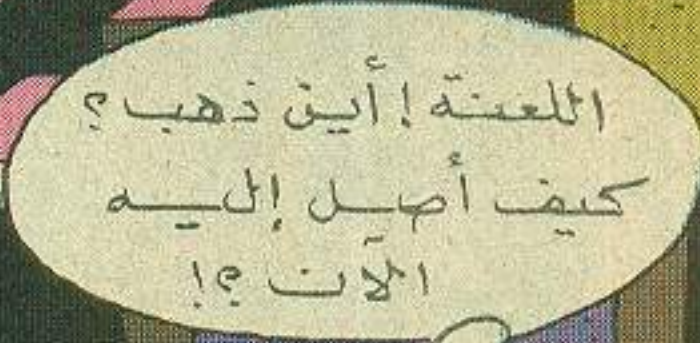 اللعنة! أين ذهب؟
كيف أصل إليه
الآن؟!